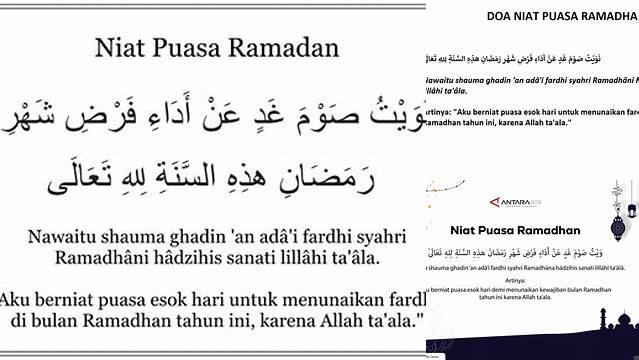 Niat Puasa Ramadan
نَوَيْتُ صَوْمَ غَدٍ عَنْ أَدَاءِ فَرْضِ شَهْرِ
رَمَضَانِ هذِهِ السَّنَةِ لِلهِ تَعَالَى
Nawaitu shauma ghadin 'an adâ'i fardhi syahri
Ramadhâni hâdzihis sanati lillâhi ta'âla.
Aku berniat puasa esok hari untuk menunaikan
di bulan Ramadhan tahun ini, karena Allah ta'ala."
DOA NIAT PUASA
نَوَيْتُ صَوْمَ غَدٍ عَنْ أَدَاءِ فَرْضِ شَهْرِ رَمَضَانِ هذِهِ السَّنَةِ لِلهِ تَعَالَى
Nawaitu shauma ghadin 'an adâ'i fardhi syahri Ramadhâni
lillâhi ta'âla.
Artinya: "Aku berniat puasa esok hari untuk menunaikan
Ramadhan tahun ini, karena Allah ta'ala."
ANTARANTB
Niat Puasa Ramadhan
صَوْمَ غَدٍ عَنْ أَدَاءِ فَرْضِ شَهْرِ رَمَضَانِ هذِهِ السَّنَةِ لِلهِ تَعَالَى
shauma ghadin 'an adâ'i fardhi syahri Ramadhâna hâdzihis sanati lillâhi ta'âlâ.
Artinya:
berniat puasa esok hari demi menunaikan kewajiban bulan Ramadan
tahun ini karena Allah ta'ala.